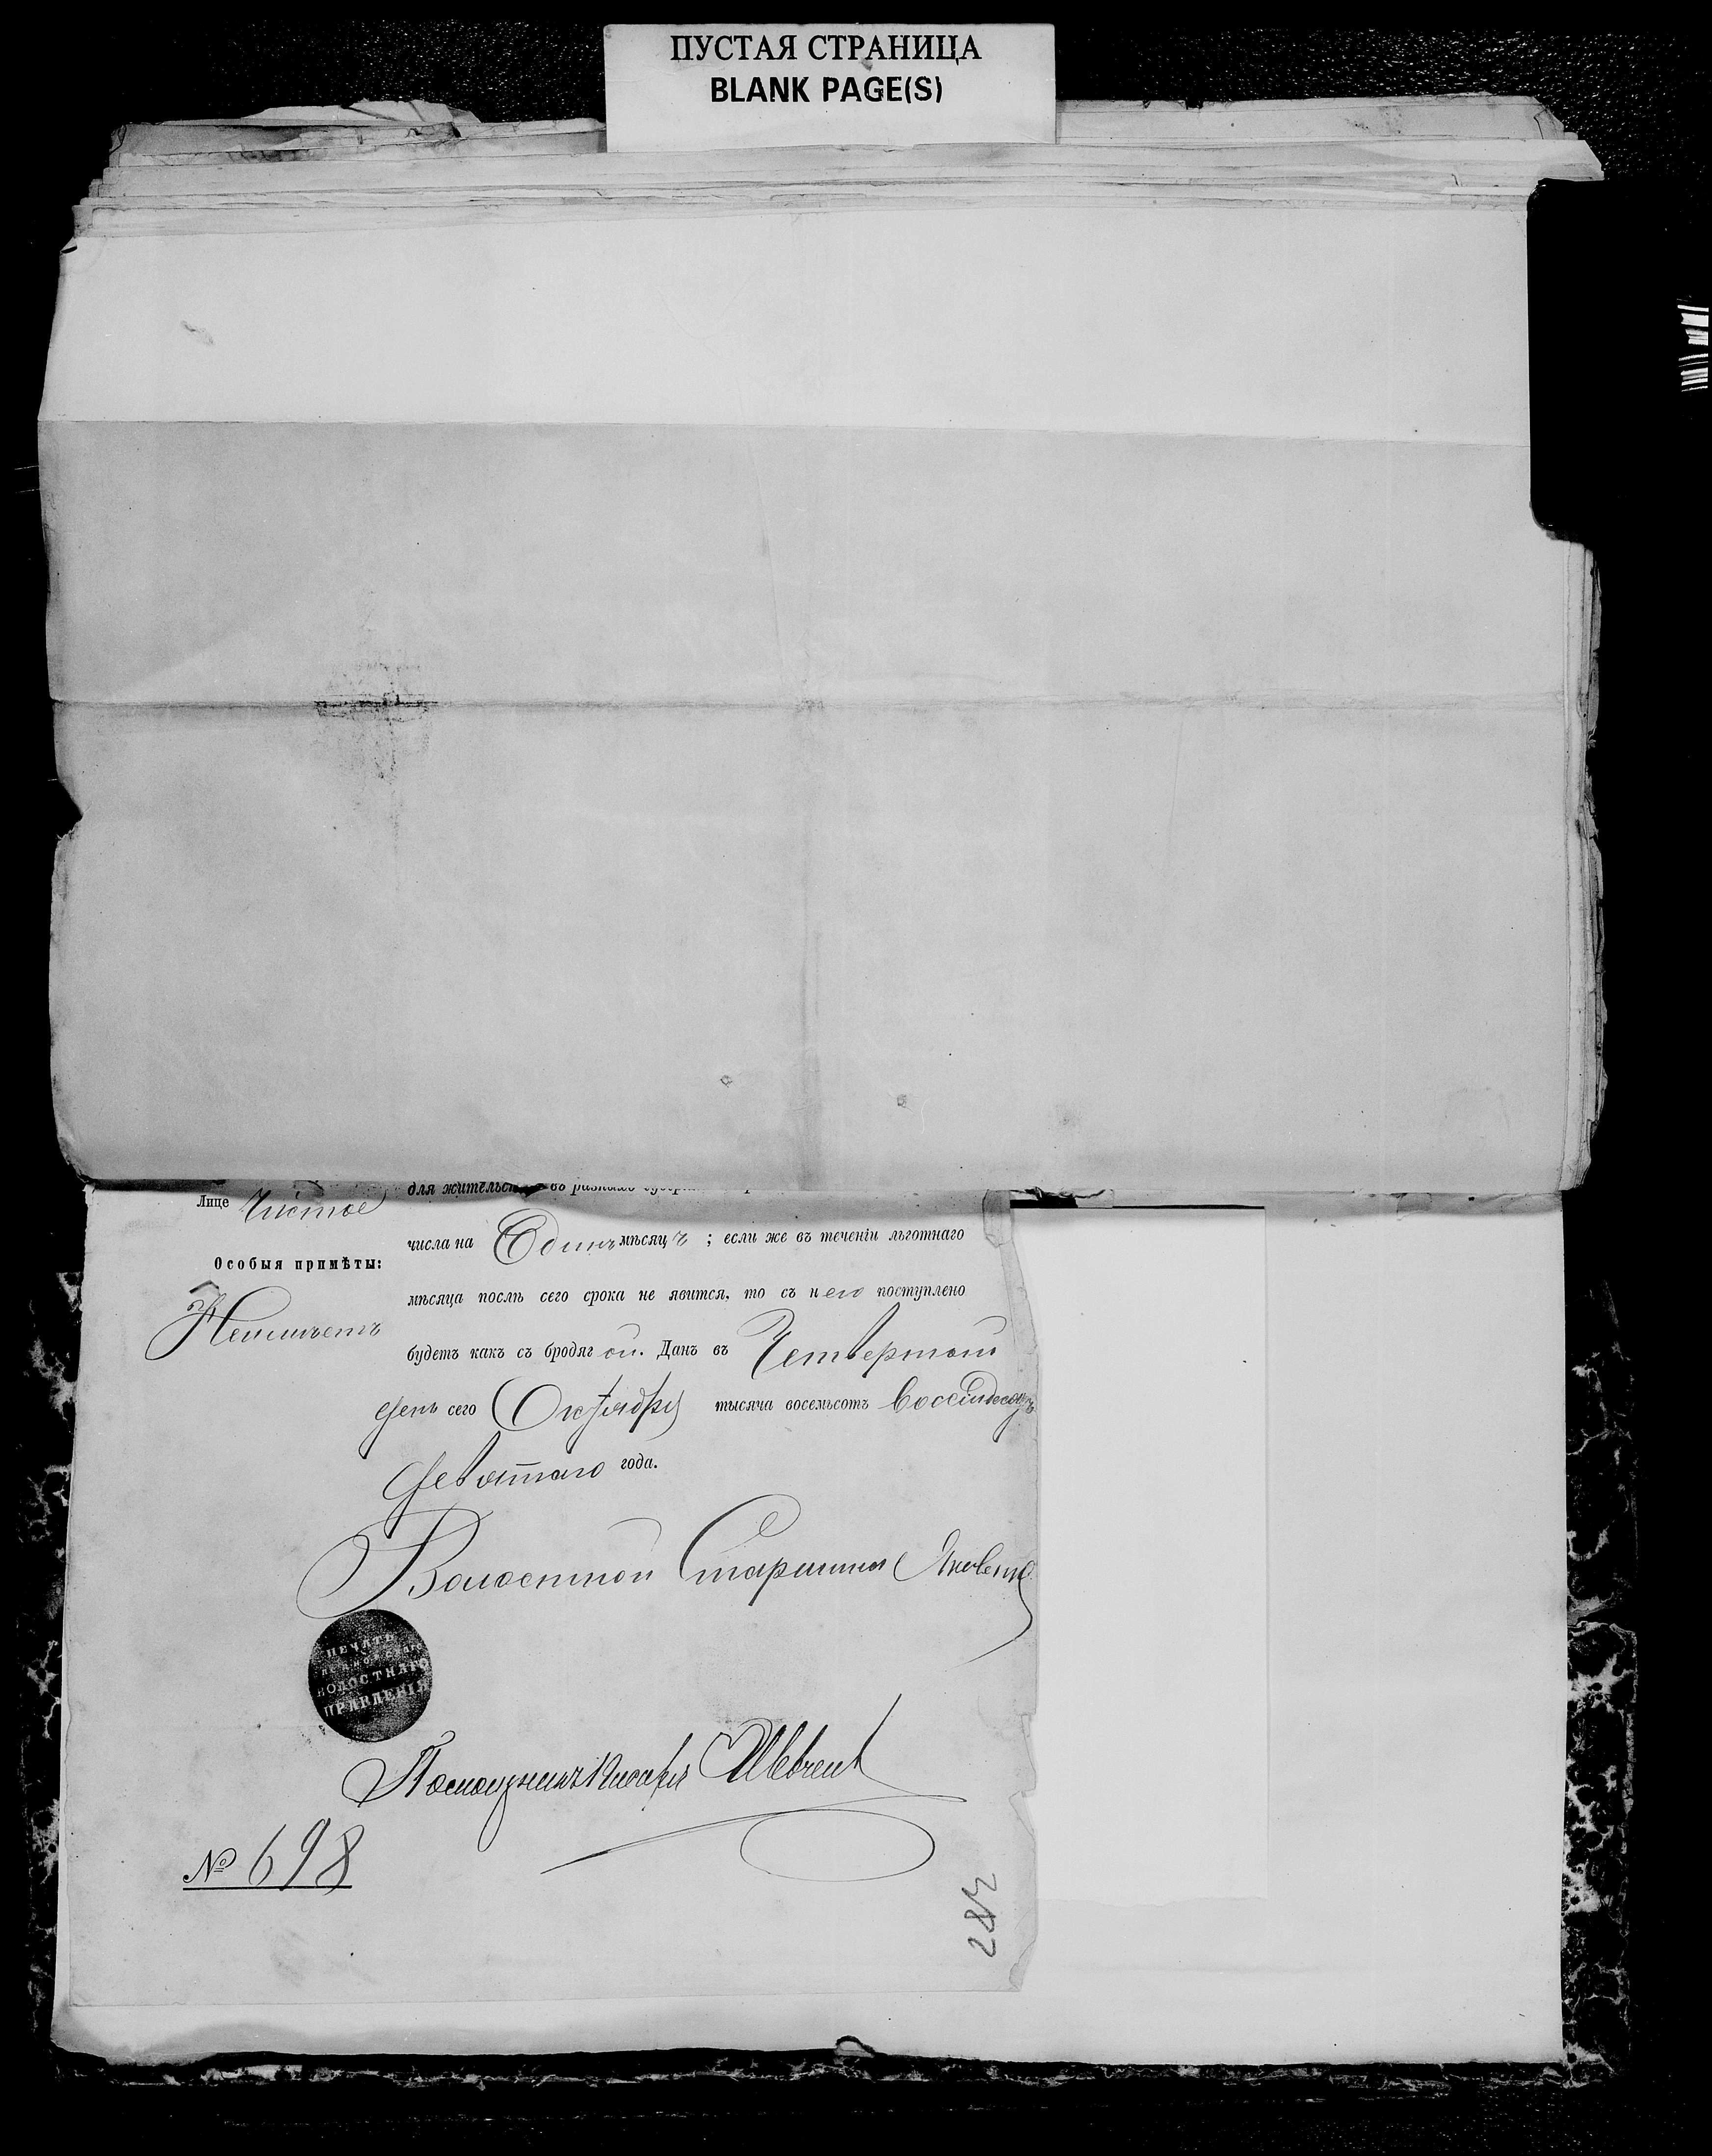 ПУСТАЯ СТРАНИЦА
BLANK PAGE(S)
для жительства въ разныхъ
Лице Чистое
числа на Одинъ мѣсяцъ ; если же въ теченіи льготнаго
Особыя примѣты:
мѣсяца послѣ сего срока не явится, то съ него поступлено
Неимѣетъ
будетъ какъ съ бродягой. Данъ въ Четвертый
день сего Октября тысяча восемьсотъ восемьдесятъ
девятаго года.
Волостной Старшина Яковенко
ПЕЧАТЬ
ВОЛОСТНАГО
ПРАВЛЕНІЯ
Помощникъ Писаря Шевченко
№ 698
284